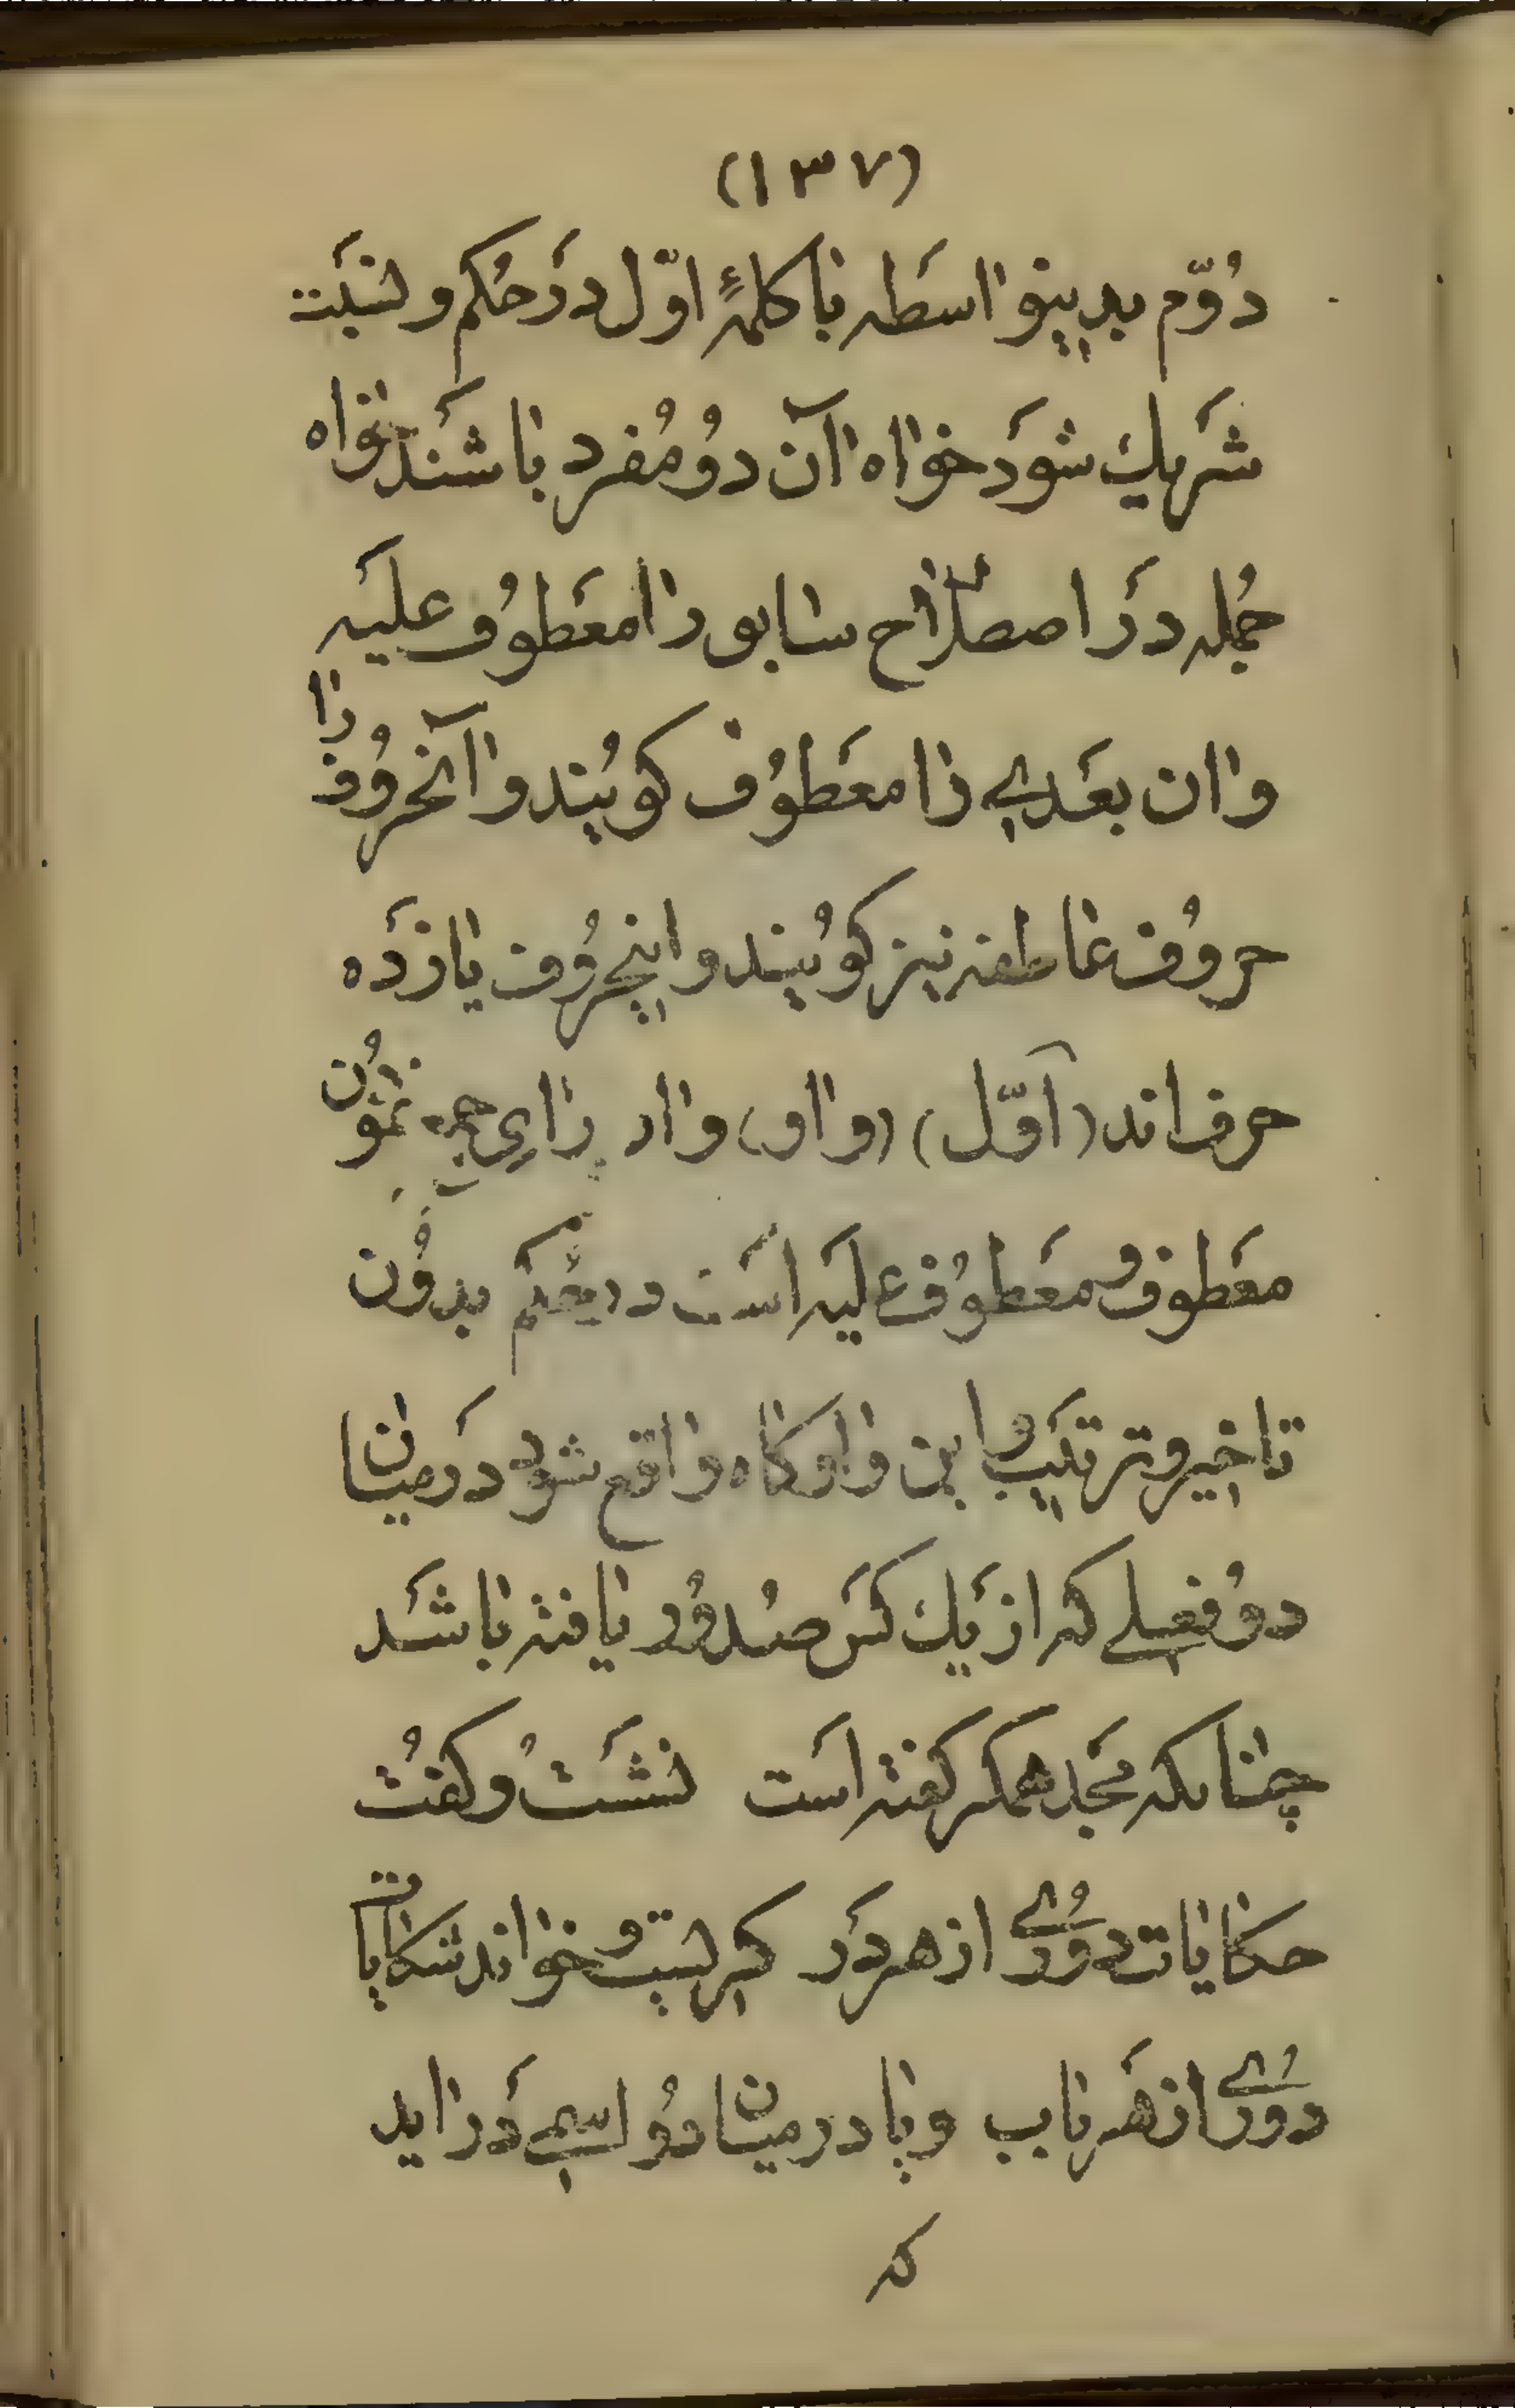 (١٣٧)
دُوّم بدینواسَطه باکلمهٔ اوّل دَرحُکم ونسبَت
شَریك شوَد خواه آن دُو مُفرد باشَند خواه
جُمله دَر اصطلاح سابق را معَطوُف علیَه
وان بعَدی را معَطوُف کویُند و آنحرُوف را
حروُف عاطفه نیز کویُند و اینحرُوف یازدَه
حرف اند (اوّل) (واو) واو برای جمع نموُدن
معَطوف و معَطوُف علیَه اسَت در حکم بدوُن
تاخیر و ترتیَب و این واو کاه واقع شود دَرمیان
دوُ فعلے که ازیَك کسَ صُدوُر یافته باشَد
چنانکه مجَد همکر کفته اسَت نشسَتُ و کفتُ
حکایات دوُرے از هر دَر کریست و خواند شکایات
دوُرے از هَر باب و یا درمیان دوُ اسمے دَراید
که